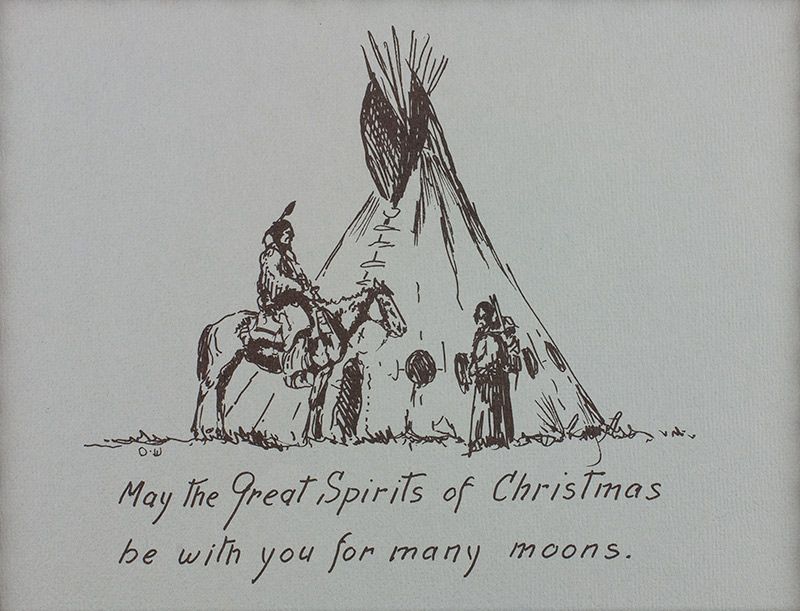 O-W
May the Great Spirits of Christmas
be with you for many moons.